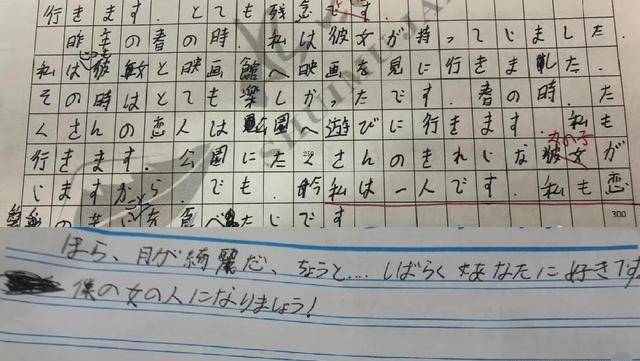 行きます。とても残念です。
昨年の春の時、私は彼女が持ってじました。
私は彼女と映画館へ映画を見に行きました。
その時はとても楽しかったです。春の時、た
くさんの恋人は公園へ遊びに行きます。私も
女の子
行きます。公園にたくさんのきれじな彼女が
じますから。でも、今私は一人です。私も恋
べたじです
300
ほら、月が綺麗だ、ちょうと....しばらくあなたに好きです
僕の女の人になりましょう!